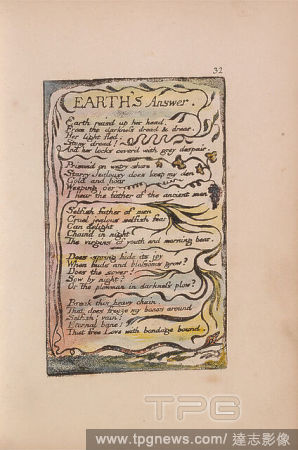 32
EARTH'S Answer.
Earth rais'd up her head,
From the darkness dread & drear.
Her light fled:
Stony dread!
And her locks cover'd with grey despair.
Prison'd on watry shore
Starry Jealousy does keep my den
Cold and hoar
Weeping o'er
I hear the father of the ancient men
Selfish father of men
Cruel jealous selfish fear
Can delight
Chain'd in night
The virgins of youth and morning bear.
Does spring hide its joy
When buds and blossoms grow?
Does the sower?
Sow by night?
Or the plowman in darkness plow?
Break this heavy chain,
That does freeze my bones around
Selfish! vain!
Eternal bane!
That free Love with bondage bound.
TPG
www.tpgnews.com/達志影像